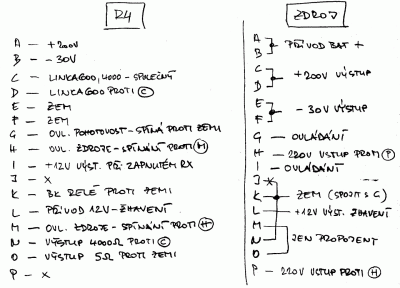 R4
A - +200V
B - -30V
C - LINKA 600, 4000 - SPOLEČNÝ
D - LINKA 600 PROTI Ⓒ
E - ZEM
F - ZEM
G - OVL. POHOTOVOST - SPÍNÁ PROTI ZEMI
H - OVL. ZDROJE - SPÍNÁNÍ PROTI Ⓜ
I - +12V VÝST. PŘI ZAPNUTÉM RX
J - X
K - BK RELÉ PROTI ZEMI
L - PŘÍVOD 12V - ŽHAVENÍ
M - OVL. ZDROJE - SPÍNÁNÍ PROTI Ⓗ
N - VÝSTUP 4000Ω PROTI Ⓒ
O - VÝSTUP 5Ω PROTI ZEMI
P - X
ZDROJ
A
B
PŘÍVOD BAT +
C
D
+200V VÝSTUP
E
F
-30V VÝSTUP
G - OVLÁDÁNÍ
H - 220V VSTUP PROTI Ⓟ
I - OVLÁDÁNÍ
J X
K ZEM (SPOJIT S C)
L - +12V VÝST. ŽHAVENÍ
M
N JEN PROPOJENY
O
P - 220V VSTUP PROTI Ⓗ